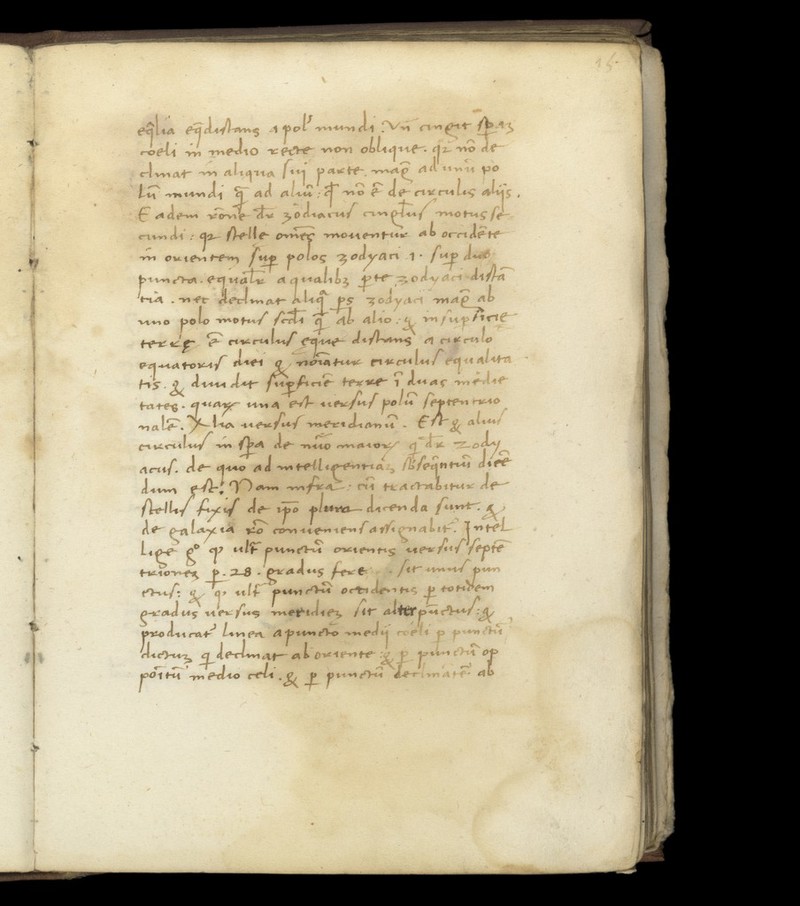 15
eq̄lia eq̄distans a pol' mundi. Vn̄ cingit sp̄aȝ
coeli in medio recte non oblique. qꝛ nō de
clinat in aliqua sui parte magꝭ ad unū po
lū mundi q̄ ad aliū: qꝉ nō ē de circulis aliis.
Eadem rōne dꝛ zodiacus cingl'us motus se
cundi: qꝛ stelle omēs moventur ab occidēte
in orientem sup̄ polos zodyaci .i. sup̄ duo
puncta equalr̄ a qualibȝ p̄te zodyaci distā
tia. nec declinat aliq̄ ps zodyaci magꝭ ab
uno polo motus scd̄i q̄ ab alio. & in sup̄ficie
terrę ē circulus ęque distans a circulo
equatoris diei & noīatur circulus equalita
tis. & dividit sup̄ficiē terre ī duas medie
tates. quaꝝ una est versus polū septentrio
nalē. Alia versus meridianū. Est & alius
circulus in sp̄a de nūo maioꝝ q̄ dꝛ zody
acus. de quo ad intelligentiaȝ sb̄seq̄ntiū dicē
dum est: Nam infra: cū tractabitur de
stellis fixis de ip̄o plura dicenda sunt. &
de galaxia rō conveniens assignabit͛. Intel
lige gº qꝙ ult̄ punctū orientis versus septē
trioneȝ ꝑ .28. gradus fere sit unus pun
ctus: & qꝙ ult̄ punctū occidentis ꝑ totidem
gradus versus meridieȝ sit alter pūctus: &
producat͛ linea a puncto medii coeli ꝑ punctū
dictuȝ qi declinat ab oriente: & ꝑ punctū op
poītū medio celi. & ꝑ punctū declinātē ab